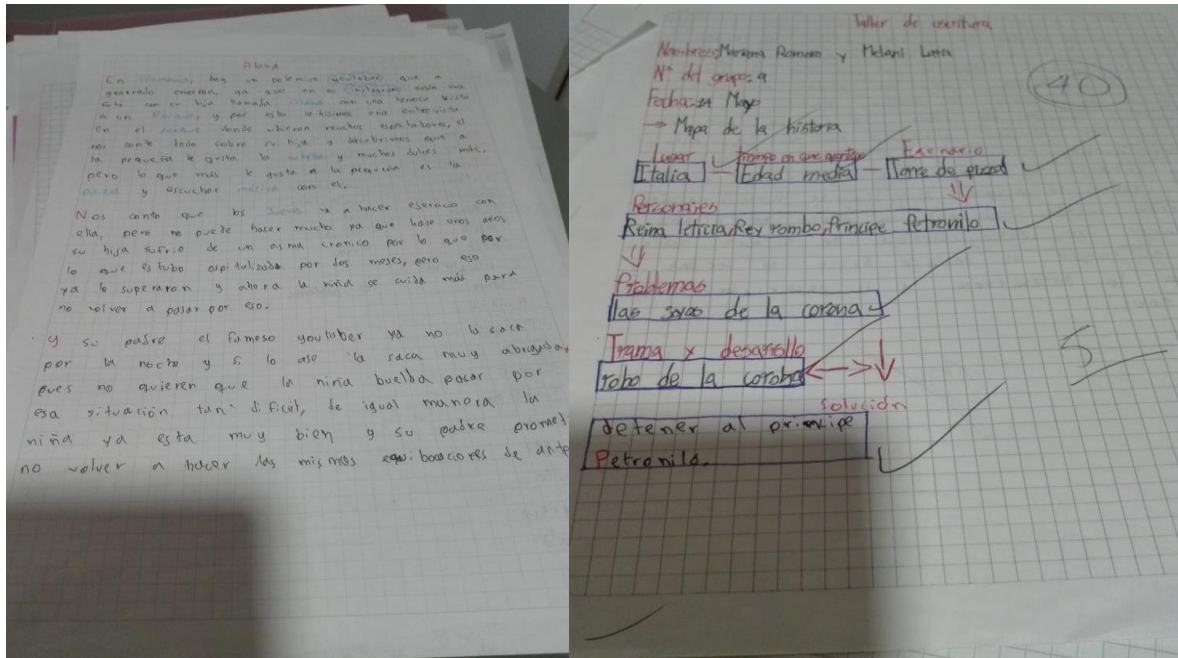 Aland
En Alemania, hay un polemico youtuber que a
generado emocion, ya que en su instagram subio una
foto con su hija llamada con una hermosa bista
a un parque, y por esto le isimos una entrevista
en el parque donde ubieron muchos espetadores, el
nos conto todo sobre su hija y descubrimos que a
la pequeña le gusta la nutella y muchos dulces más,
pero lo que más le gusta a la pequeña es la
pizza y escuchar música con el.
Nos conto que los Jueves va a hacer ejersicio con
ella, pero no puede hacer mucho ya que hase unos años
su hija sufrio de un asma cronico por lo que por
lo que estubo ospitulizada por dos meses, pero eso
ya lo superaron y ahora la niña se cuida más para
no volver a pasar por eso.
y su padre el famoso youtuber ya no la saca
por la noche y si lo ase la saca muy abrigada,
pues no quieren que la niña buelba pasar por
esa situación tan dificil, de igual manera la
niña ya esta muy bien y su padre promet
no volver a hacer las mismas equibocaciones de ante
Taller de escritura
Nombres: Mariana Romero y Melani Lara
N° del grupo: 9
Fecha: 24 Mayo
40
→ Mapa de la historia
Lugar tiempo en que Esenario
Italia - Edad media - Torre de pizza
Personajes
Reina leticia, Rey rombo, Principe Petronilo
Problemas
las joyas de la corona
Trama y desarollo
robo de la corona
5
solución
detener al principe
Petronilo.